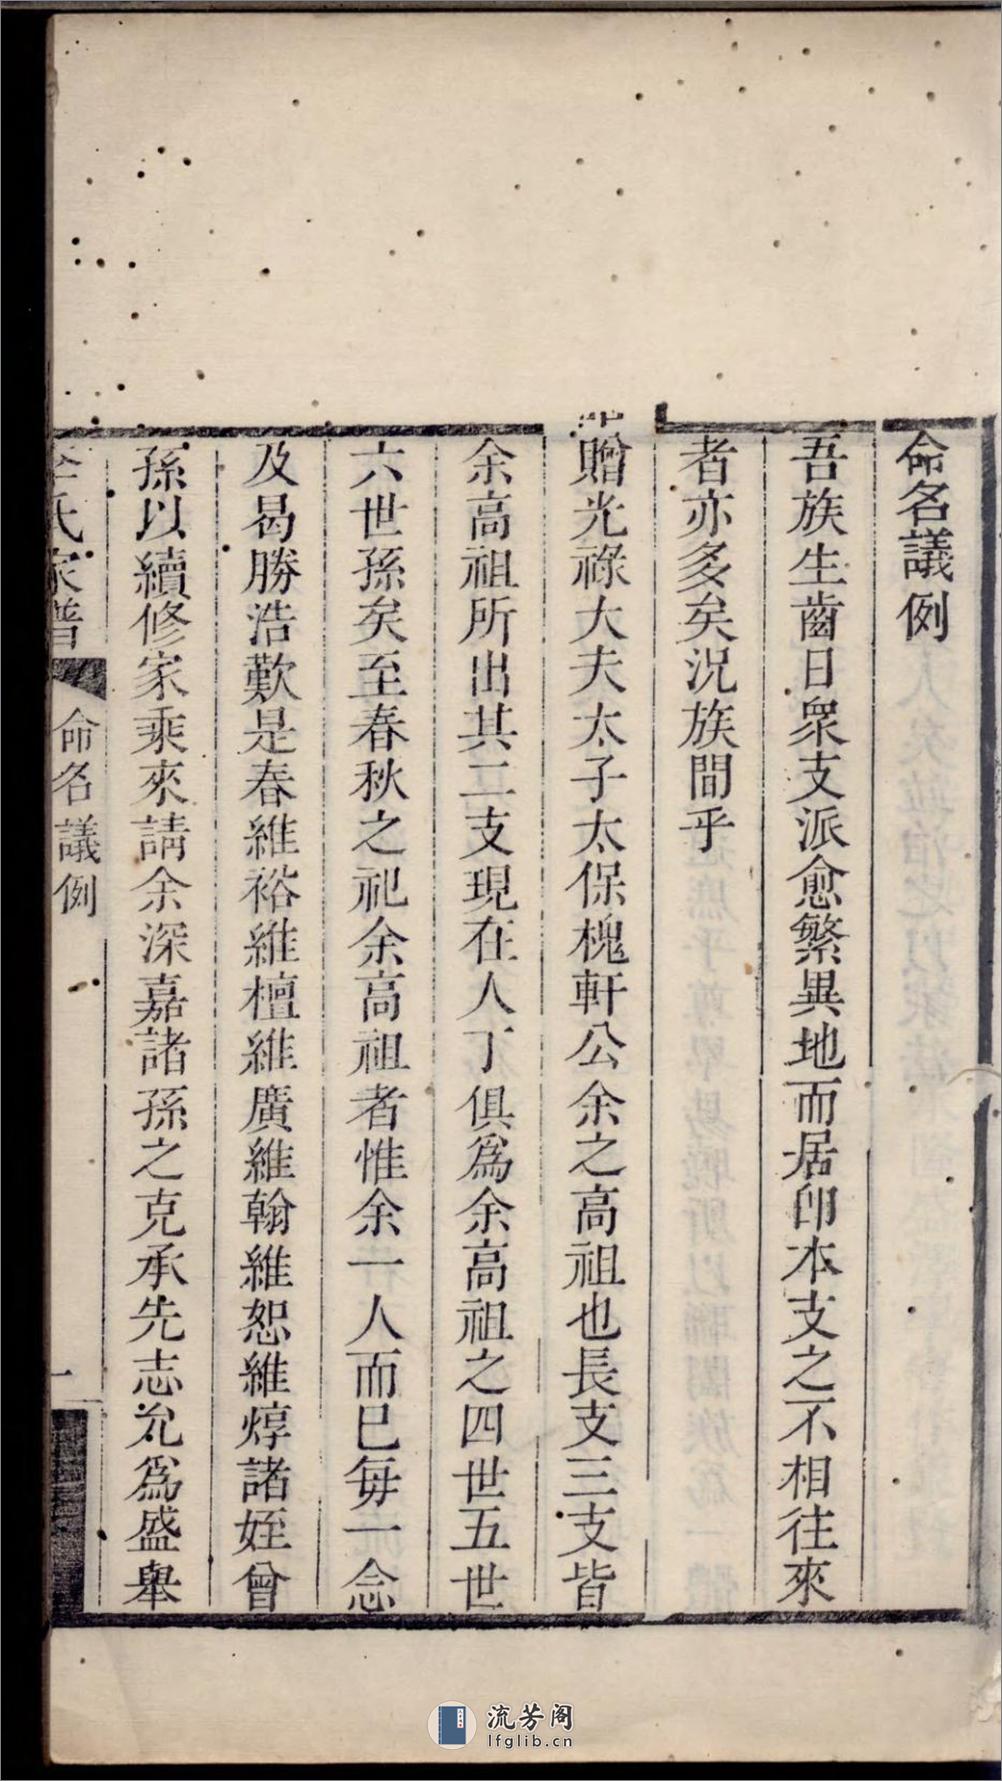 命名議例
吾族生齒日眾支派愈繁異地而居卽本支之不相往來
者亦多矣況族間乎
贈光祿大夫太子太保槐軒公余之高祖也長支三支皆
余高祖所出其二支現在人丁俱為余高祖之四世五世
六世孫矣至春秋之祀余高祖者惟余一人而已每一念
及曷勝浩歎是春維裕維檀維廣維翰維恕維焞諸姪曾
孫以續修家乘來請余深嘉諸孫之克承先志允為盛舉
氏家譜 命名議例 一
流芳阁
lfglib.cn